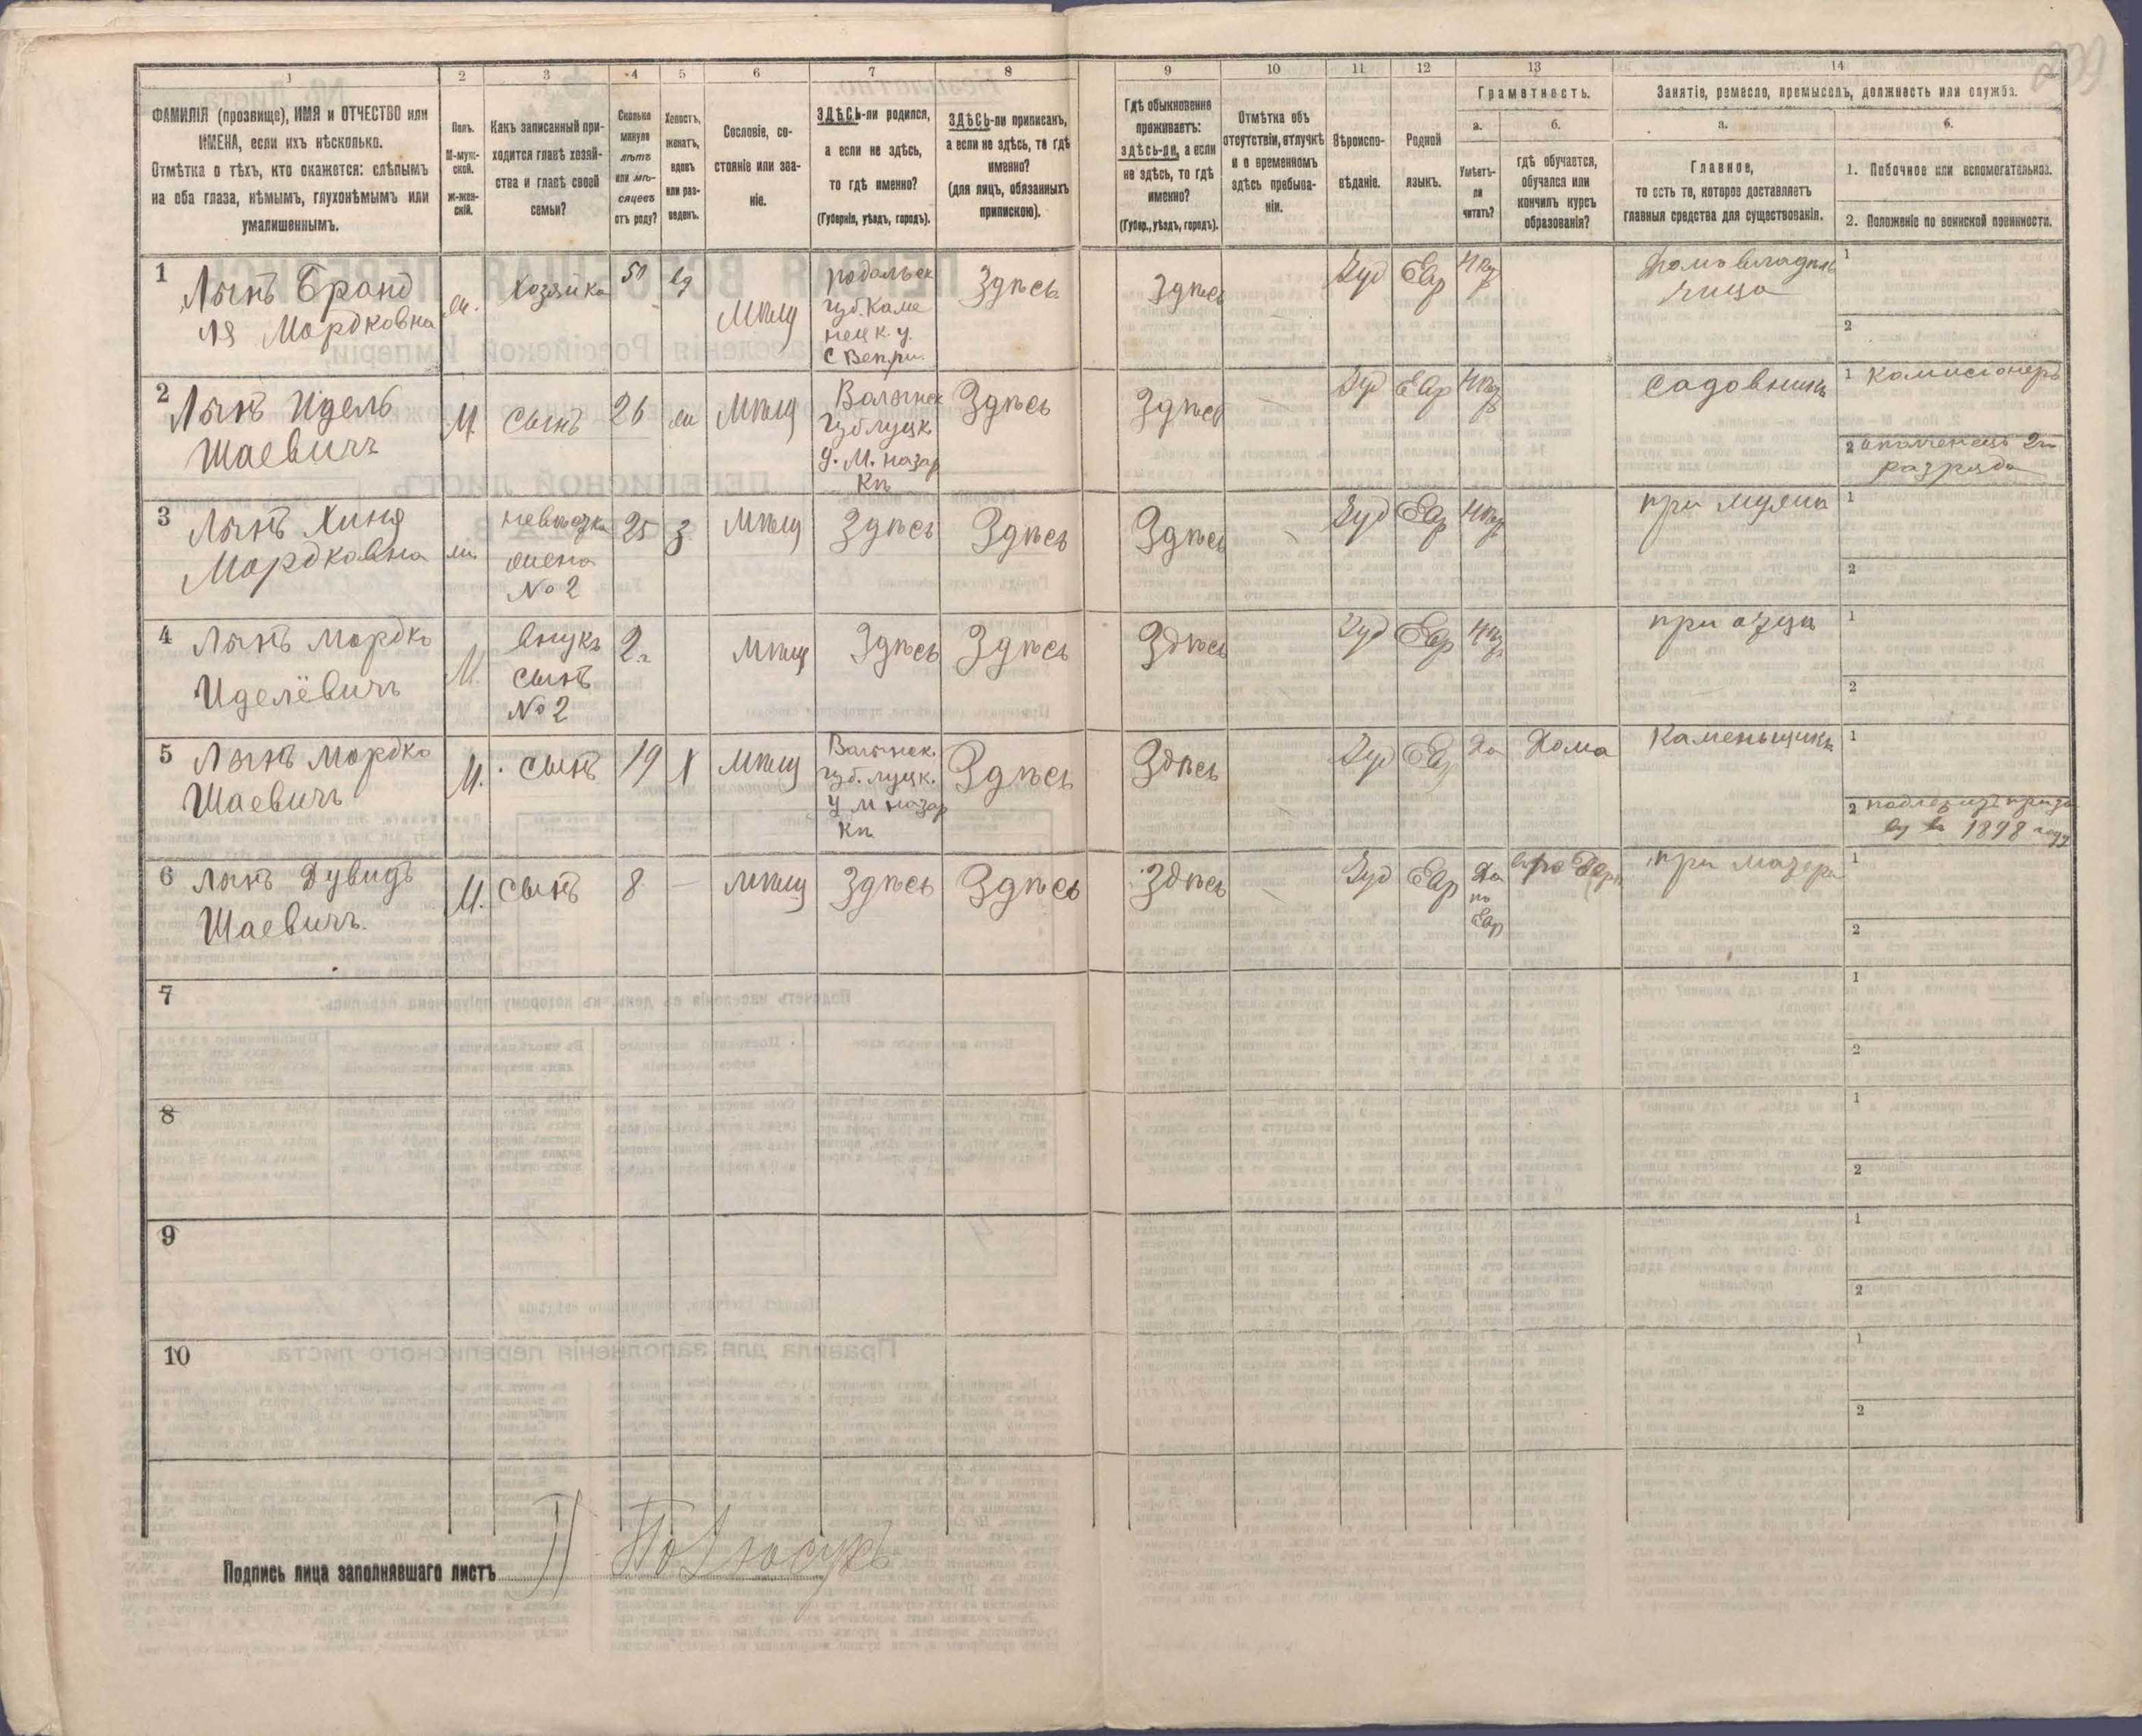 209
1
2
3
4
5
6
7
8
9
10
11
12
13
14
ФАМИЛІЯ (прозвище), ИМЯ и ОТЧЕСТВО или
ИМЕНА, если ихъ нѣсколько.
Отмѣтка о тѣхъ, кто окажется: слѣпымъ
на оба глаза, нѣмымъ, глухонѣмымъ или
умалишеннымъ.
Полъ.
М-муж-
ской.
ж-жен-
скій.
Какъ записанный при-
ходится главѣ хозяй-
ства и главѣ своей
семьи?
Сколько
минуло
лѣтъ
или мѣ-
сяцевъ
отъ роду?
Холостъ,
женатъ,
вдовъ
или раз-
веденъ.
Сословіе, со-
стояніе или зва-
ніе.
ЗДѢСЬ-ли родился,
а если не здѣсь,
то гдѣ именно?
(Губернія, уѣздъ, городъ).
ЗДѢСЬ-ли приписанъ,
а если не здѣсь, то гдѣ
именно?
(для лицъ, обязанныхъ
припискою).
Гдѣ обыкновенно
проживаетъ:
здѣсь-ли, а если
не здѣсь, то гдѣ
именно?
(Губер., уѣздъ, городъ).
Отмѣтка объ
отсутствіи, отлучкѣ
и о временномъ
здѣсь пребыва-
ніи.
Вѣроиспо-
вѣданіе.
Родной
языкъ.
Грамотность.
а.
Умѣетъ-
ли
читать?
б.
гдѣ обучается,
обучался или
кончилъ курсъ
образованія?
Занятіе, ремесло, промыселъ, должность или служба.
а.
Главное,
то есть то, которое доставляетъ
главныя средства для существованія.
б.
1. Побочное или вспомогательное.
2. Положеніе по воинской повинности.
1
Лынъ Бранд
ля Мордковна
ж.
Хозяйка
50
вд
Мѣщ
Подольск
губ. Каме
нецк. у.
Здѣсь
Здѣсь
Іуд
Евр
Нѣт
Домовладѣль
чица
1
2
2
Лынъ Идель
Шаевичъ
М.
сынъ
26
жн
Мѣщ
Волынск
губ луцк.
у. М. назар
Кѣ
Здѣсь
Здѣсь
Іуд
Евр
Нѣт
садовникъ
1 комисіонеръ
2 ополченецъ 2го
разряда
3
Лынъ Хиня
Мордковна
ж.
невѣстка
жена
№ 2
25
з
Мѣщ
Здѣсь
Здѣсь
Здѣсь
Іуд
Евр
Нѣт
при мужѣ
1
2
4
Лынъ Мордко
Иделёвичъ
М.
внукъ
сынъ
№ 2
2 г
Мѣщ
Здѣсь
Здѣсь
Здѣсь
Іуд
Евр
Нѣт
при отцѣ
1
2
5
Лынъ Мордко
Шаевичъ
М.
сынъ
19
Х
Мѣщ
Волынск.
губ. луцк.
у м назар
Кѣ
Здѣсь
Здѣсь
Іуд
Евр
Да
Дома
Каменьщикъ
1
2 подлежитъ призы
ву въ 1898 году
6
Лынъ Дувидъ
Шаевичъ.
М.
сынъ
8
—
Мѣщ
Здѣсь
Здѣсь
Здѣсь
Іуд
Евр
Да
по
Евр
при матери
1
2
7
1
2
8
1
2
9
1
2
10
1
2
Подпись лица заполнявшаго листъ